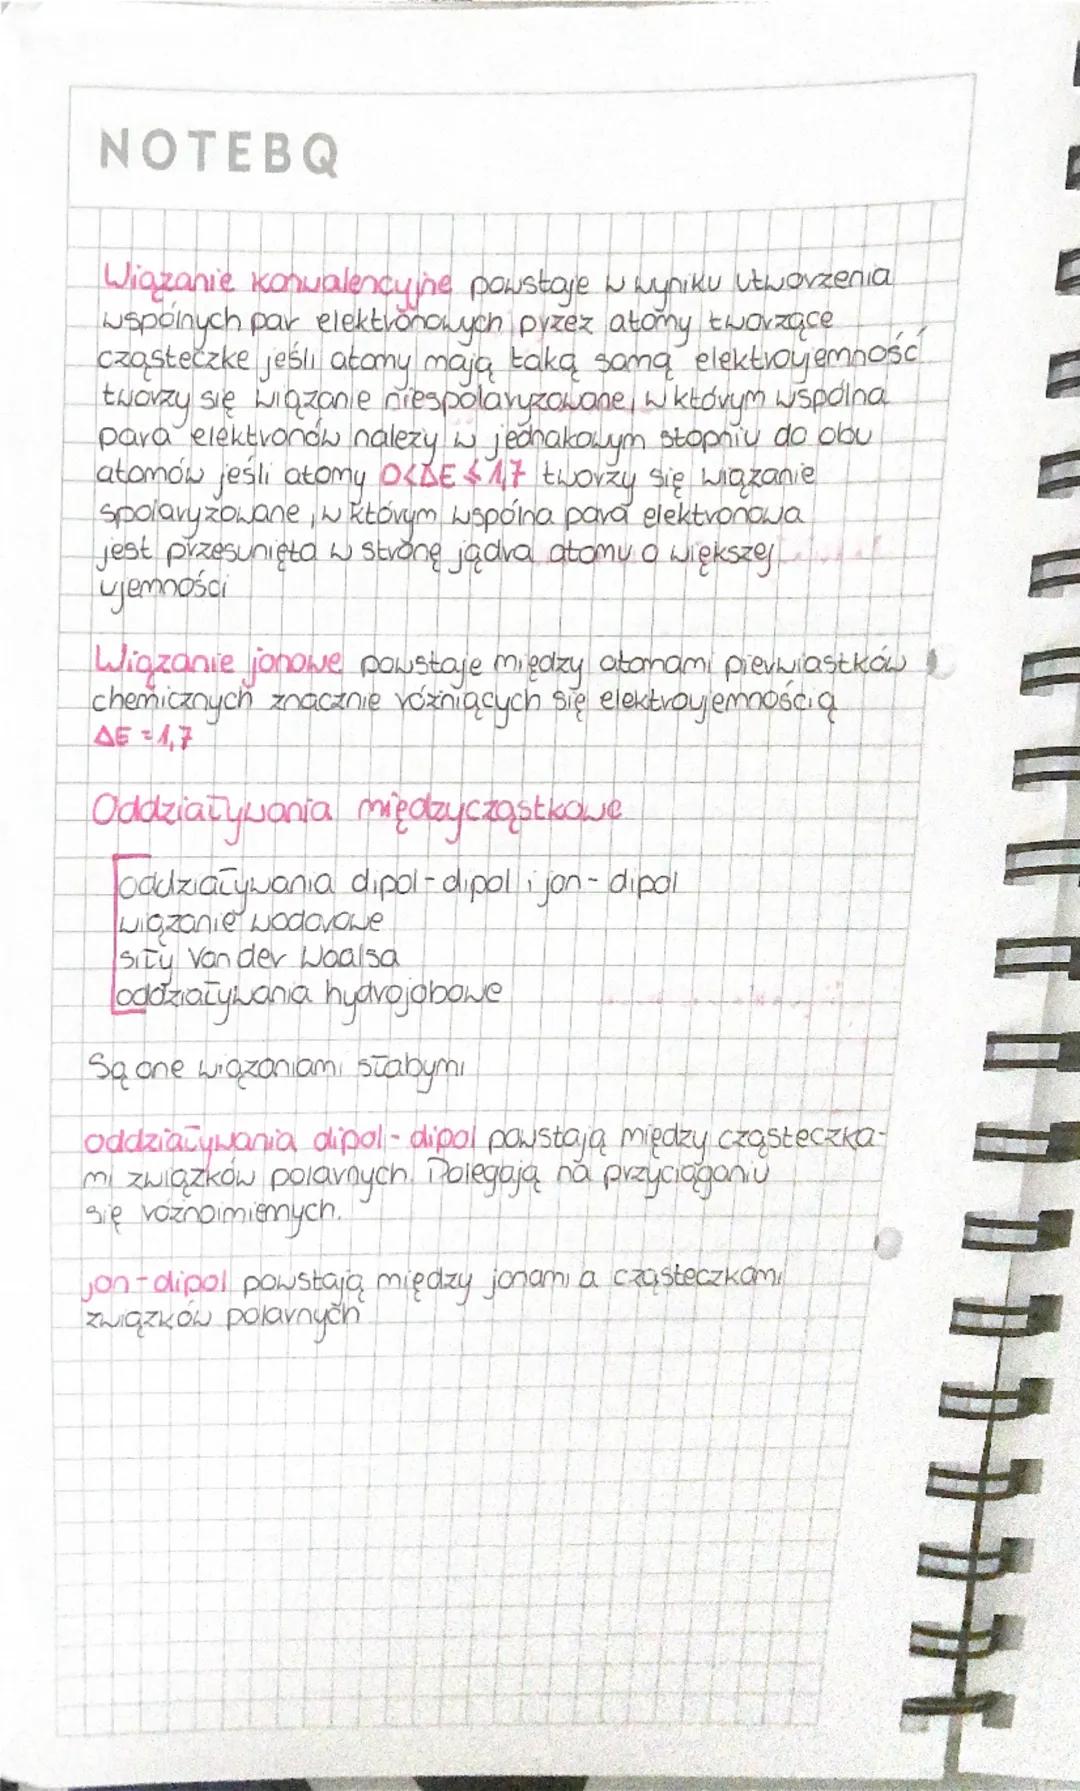 NOTEBQ
Wiązanie konwalencyjne powstaje w wyniku utworzenia
wspólnych par elektronowych przez atomy tworzące
cząsteczke jeśli atomy mają taką samą elektroujemność
tworzy się wiązanie niespolaryzowane, w którym wspólna
para elektronów należy w jednakowym stopniu do obu
atomów jeśli atomy 0<ΔE≤1,7 tworzy się wiązanie
spolaryzowane, w którym wspólna para elektronowa
jest przesunięta w stronę jądra atomu o większej
ujemności
Wiązanie jonowe powstaje między atomami pierwiastków
chemicznych znacznie różniących się elektroujemnością
ΔE = 1,7
Oddziaływania międzycząstkowe
oddziaływania dipol-dipol i jon-dipol
wiązanie wodorowe
siły Van der Waalsa
oddziaływania hydrojobowe
Są one wiązaniami słabymi
oddziaływania dipol-dipol powstają między cząsteczka-
mi związków polarnych. Polegają na przyciąganiu
się róznoimiennych.
jon-dipol powstają między jonami a cząsteczkami
związków polarnych